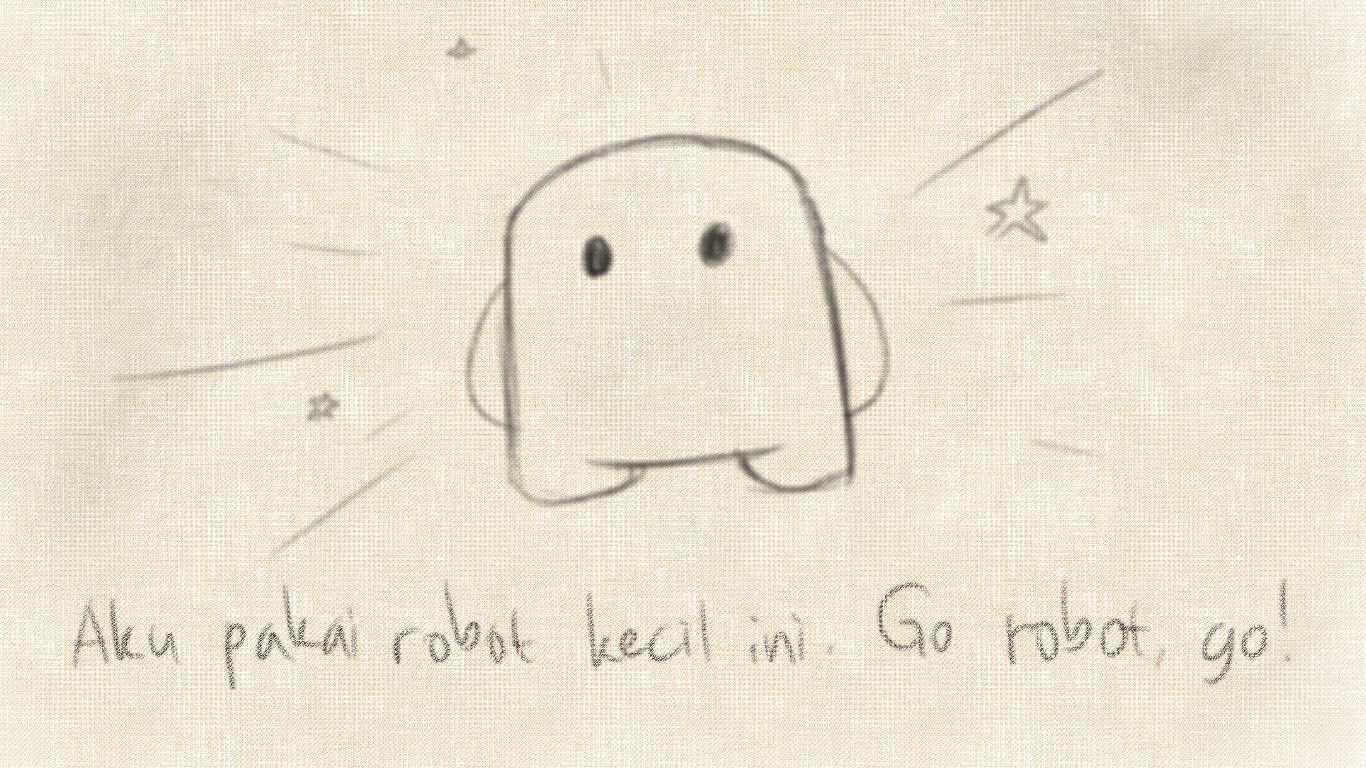 Aku pakai robot kecil ini. Go robot, go!